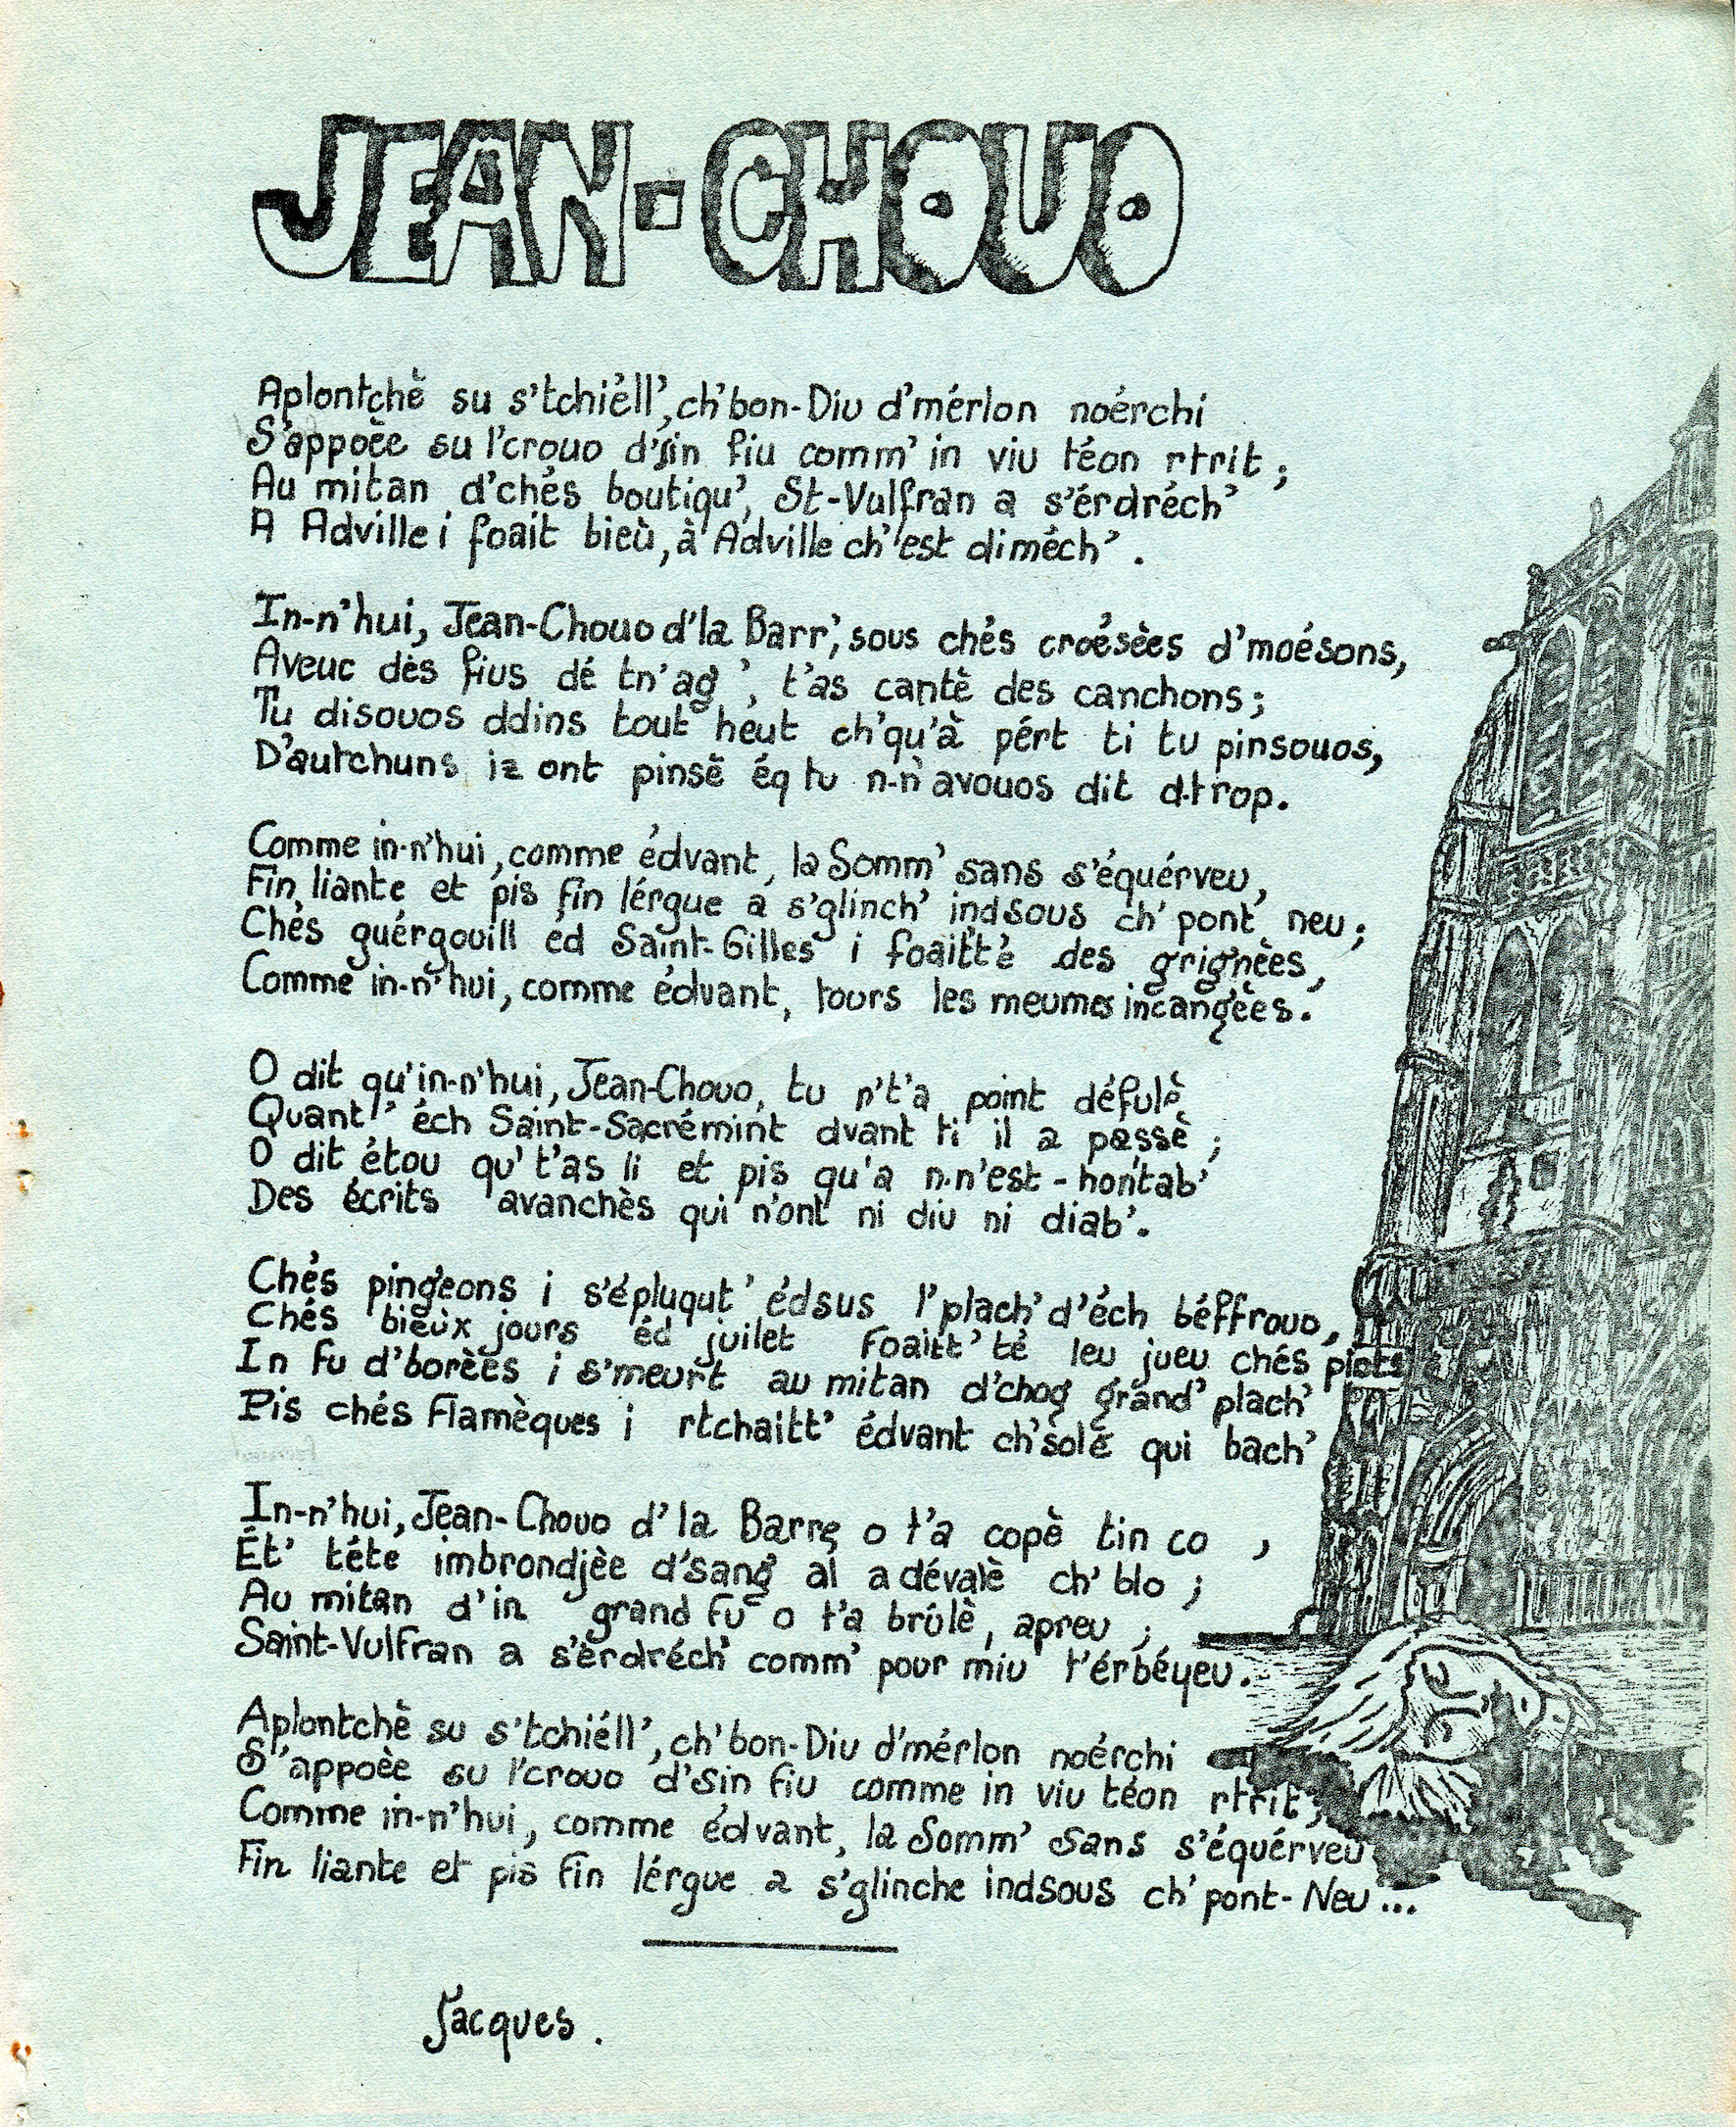 JEAN-CHOUO
Aplontchè su s'tchiéll', ch'bon-Diu d'mérlon noérchi
S'appoèe su l'crouo d'sin fiu comm' in viu téon rtrit ;
Au mitan d'chés boutiqu', St-Vulfran a s'érdréch'
A Adville i foait bieù, à Adville ch'est diméch' .
In-n'hui, Jean-Chouo d'la Barr', sous chés croésèes d'moésons,
Aveuc dés fius dé tn'ag', t'as cantè des canchons ;
Tu disouos ddins tout heut ch'qu'à pért ti tu pinsouos,
D'autchuns iz ont pinsè éq tu n-n'avouos dit d-trop.
Comme in-n'hui, comme édvant, la Somm' sans s'équérveu,
Fin liante et pis fin lérgue a s'glinch' indsous ch'pont neu ;
Chés guérgouill éd Saint-Gilles i foaitt'é des grignèes,
Comme in-n'hui, comme édvant, tours les meumes incangèes.
O dit qu'in-n'hui, Jean-Chouo, tu n't'a point défulè
Quant' éch Saint-Sacrémint dvant ti il a passè ;
O dit étou qu't'as li et pis qu'a n-n'est-hontab'
Des écrits avanchès qui n'ont ni diu ni diab'.
Chés pingeons i s'épluqut' édsus l'plach' d'éch béffrouo,
Chés bieùx jours éd juilet foaitt'té leu jueu chés piots
In fu d'borèes i s'meurt au mitan d'choq grand' plach'
Pis chés Flamèques i rtchaitt' édvant ch'solé qui bach'
In-n'hui, Jean-Chouo d'la Barre o t'a copè tin co ,
Ét' téte imbrondjèe d'sang al a dévalè ch'blo ;
Au mitan d'in grand fu o t'a brûlè, apreu ;
Saint-Vulfran a s'érdréch' comm' pour miu t'érbéyeu.
Aplontchè su s'tchiéll', ch'bon-Diu d'mérlon noérchi
S'appoèe su l'crouo d'sin fiu comme in viu téon rtrit ;
Comme in-n'hui, comme édvant, la Somm' sans s'équérveu
Fin liante et pis fin lérgue a s'glinche indsous ch'pont-Neu ...
Jacques .